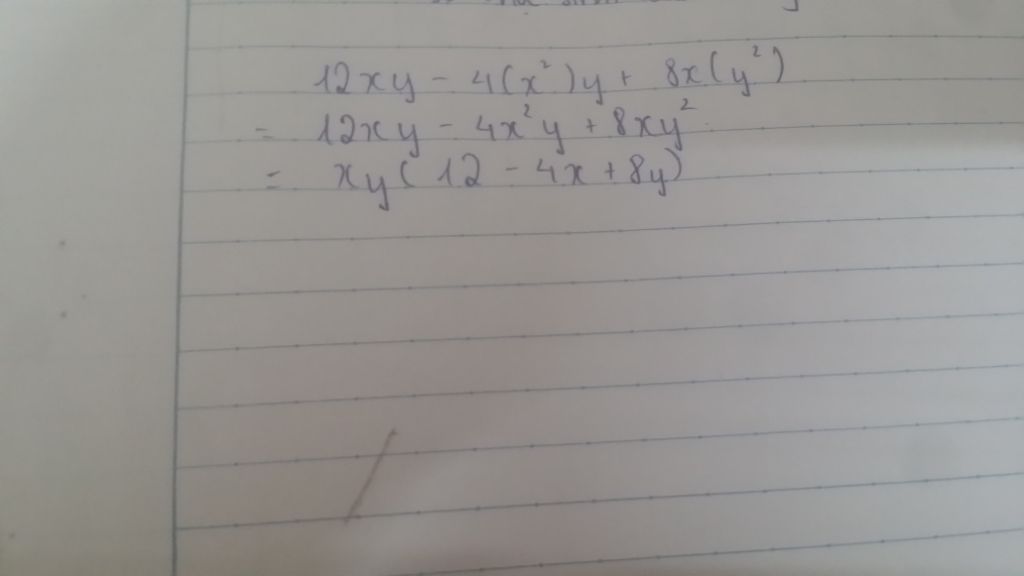 12xy - 4(x²)y + 8x(y²)
= 12xy - 4x²y + 8xy²
= xy(12 - 4x + 8y)